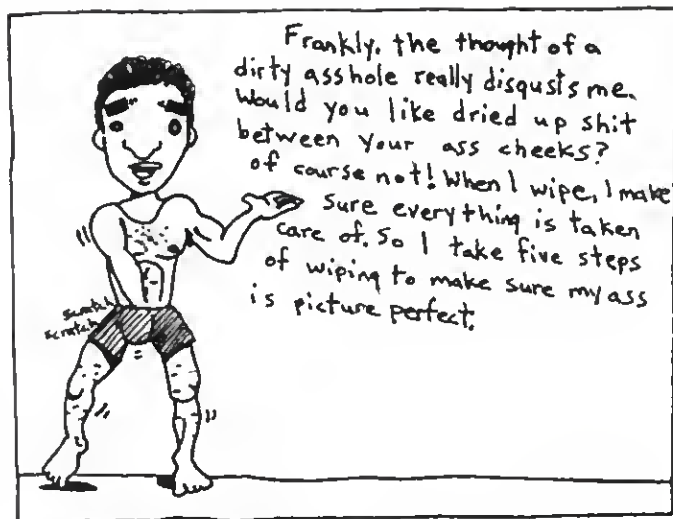 Frankly, the thought of a
dirty asshole really disgusts me.
Would you like dried up shit
between your ass cheeks?
of course not! When I wipe, I make
sure everything is taken
care of. So I take five steps
of wiping to make sure my ass
is picture perfect.
scratch
scratch